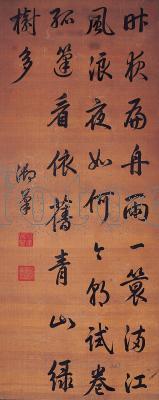 昨夜扁舟雨一蓑滿江
風浪夜如何今朝試卷
孤篷看依舊青山綠
樹多
御筆